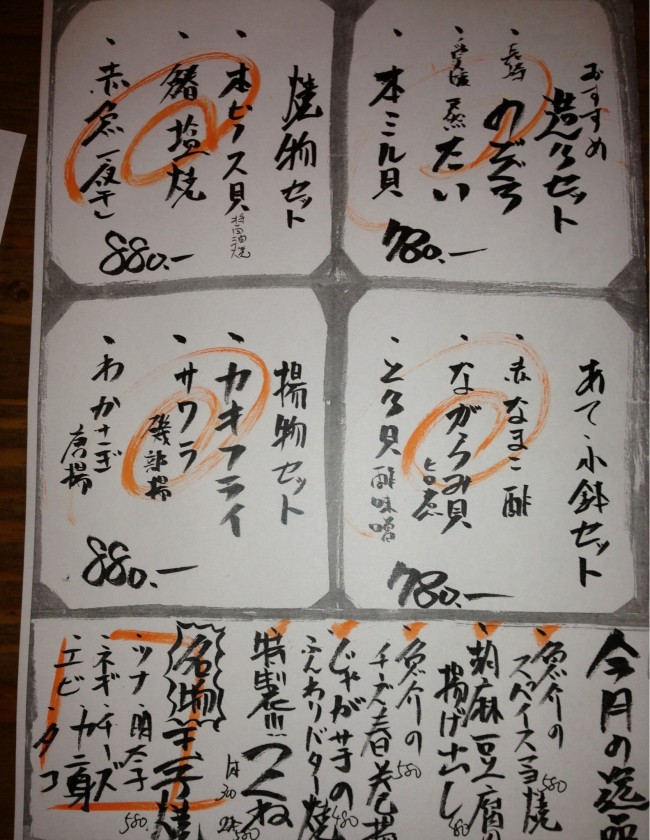 おすすめ
造りセット
、長崎 のどぐろ
たい
、本ミル貝
780.-
焼物セット
、本ビノス貝 醤油焼
、鰆 塩焼
、赤魚一夜干し
880.-
あて・小鉢セット
、赤なまこ酢
、ながらみ貝 旨煮
、とり貝 酢味噌
780.-
揚物セット
、カキフライ
、サワラ 磯部揚
、わかさぎ 唐揚
880.-
今月の逸品
魚介の
スパイスマヨ焼 580
胡麻豆腐の
揚げ出し
魚介の 580
チーズ春巻揚
じゃがサキの
ふんわりバター焼
特製!!!つくね
名物 玉子焼
・ツナ・明太子
・ネギ・チーズ
・エビ・カニ身
・タコ 580